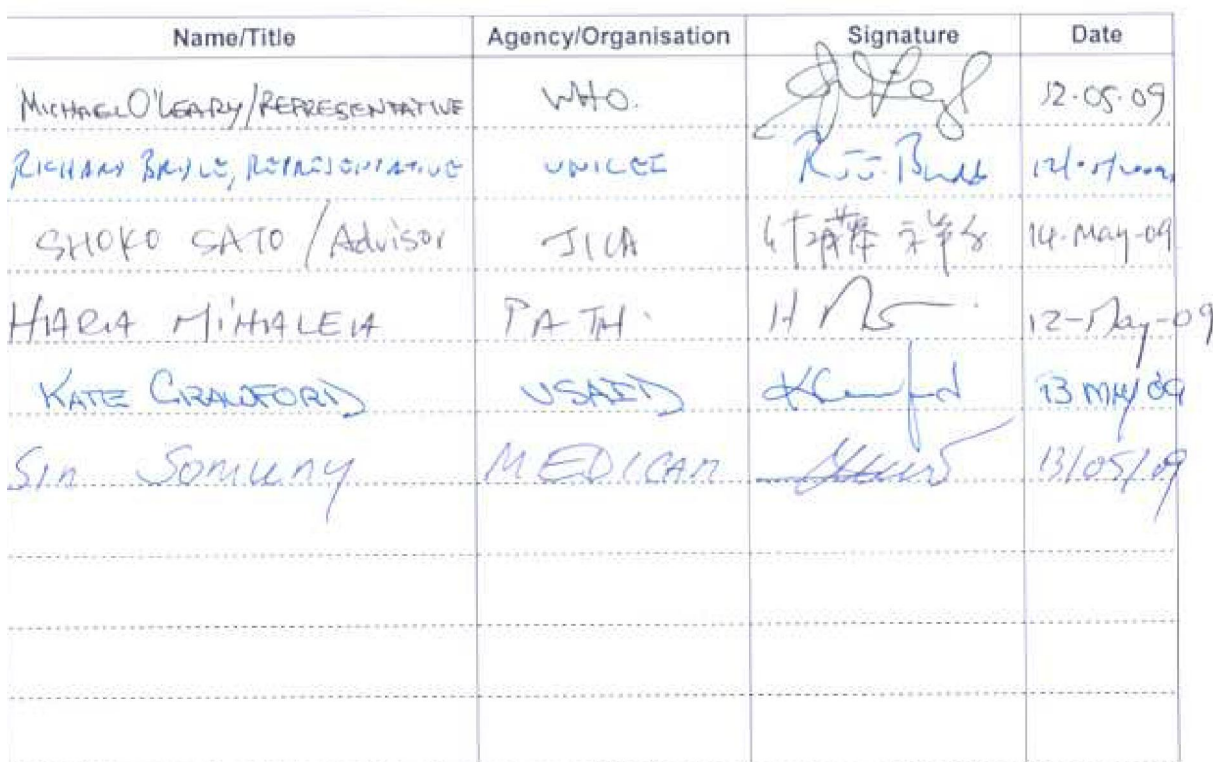 Name/Title Agency/Organisation Signature Date
MICHAEL O'LEARY/REPRESENTATIVE WHO. 12.05.09
RICHARD BRIDLE, REPRESENTATIVE UNICEF
SHOKO SATO / Advisor JICA 14-May-09
HIARIA MIHALEIA PATH. 12-May-09
KATE CRAWFORD USAID 13 MAY 09
Sin Somuny MEDICAM 13/05/09